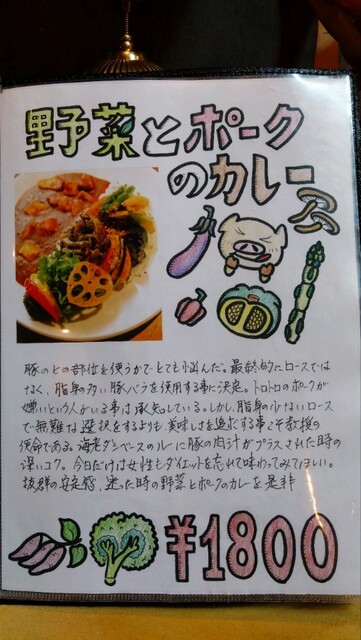 野菜とポーク
のカレー
豚のどの部位を使うかでとても悩んだ。最終的にロースでは
なく、脂身の多い豚バラを使用する事に決定。トロトロのポークが
嫌いという人がいる事は承知している。しかし、脂身の少ないロース
で無難な選択をするよりも、美味しさを追求する事こそ教授の
使命である。海老ダシベースのルーに豚の肉汁がプラスされた時の
深いコク。今日だけは女性もダイエットを忘れて味わってみてほしい。
抜群の安定感 迷った時の野菜とポークのカレーを是非
¥1800